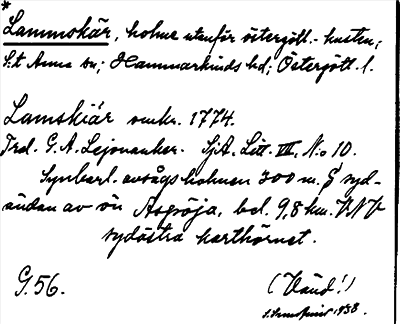 *
Lammskär, holme utanför östergötl.-kusten;
S:t Anna sn; Hammarkinds hd; Östergötl. l.
Lamskiär omkr. 1774.
Ted. G. A. Lejonanker. SjA. Litt. VII, N:o 10.
Synbarl. avsågs holmen 300 m. S syd-
ändan av ön Aspöja, bel. 9,8 km. VNV
sydöstra karthörnet.
G. 56.
(Vänd!)
1938.